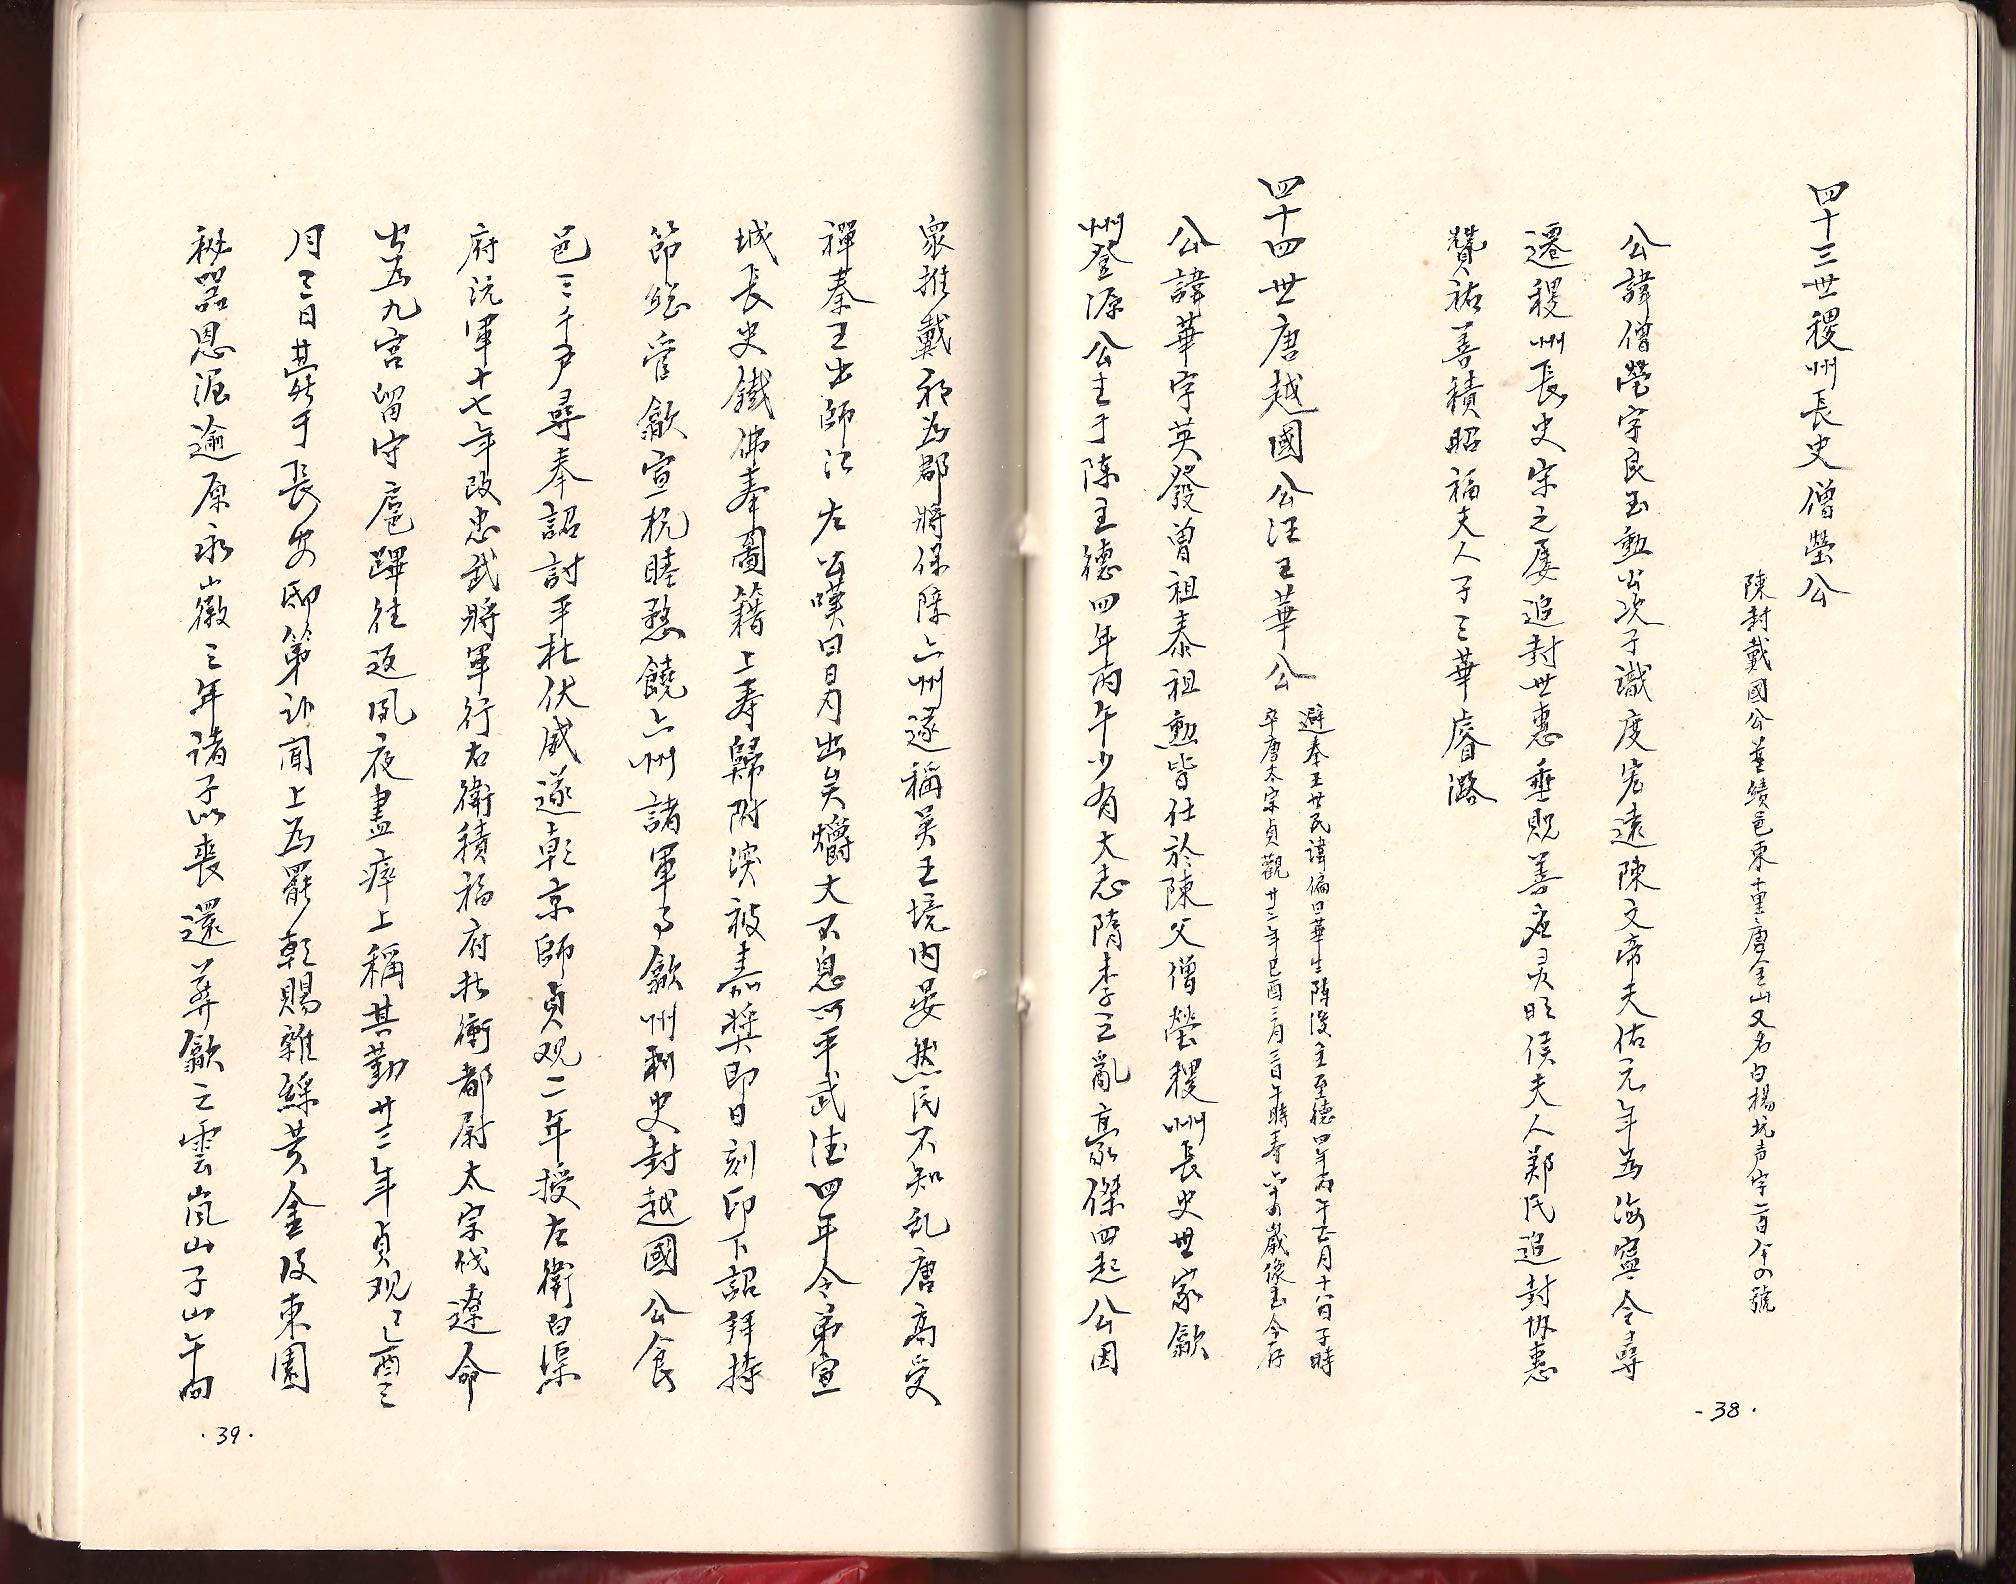 四十三世稷州長史僧瑩公
陳封戴國公葬績邑東十里唐金山又名白楊坑声字一百八十四號
公諱僧瑩字良玉勲公次子識度宏遠陳文帝天佑元年為海寧令尋
遷稷州長史宋之屢追封世惠垂貺善应灵昭侯夫人鄭氏追封協惠
贊祐善積昭福夫人子三華睿潞
四十四世唐越國公汪王華公
避秦王世民諱偏曰華生陳後主至德四年丙午正月十八日子時
卒唐太宗貞觀廿三年己酉三月三日午時壽六十四歲像里今存
公諱華字英發曾祖泰祖勲皆仕於陳父僧瑩稷州長史世家歙
州登源公生于陈至德四年丙午少有大志隋季王亂豪傑四起公因
眾推戴初為郡將保障六州遂稱吴王境内晏然民不知乱唐高受
禪秦王出師江左公嘆曰日月出矣爝火不息可乎武德四年令弟宣
城長史鐵佛奉圖籍上壽歸附深被嘉奨即日刻印下詔拜持
節總管歙宣杭睦婺饒六州諸軍事歙州刺史封越國公食
邑三千户尋奉詔討平杜伏威遂朝京師貞观二年授左衛白渠
府沅軍十七年改忠武將軍行右衛積福府折衝都尉太宗伐遼命
公為九宮留守扈蹕往返夙夜盡瘁上稱其勤廿三年貞观己酉三
月三日薨于長安邸第訃聞上為罷朝賜雜綵黄金及東園
秘器恩渥逾原永徽三年諸子以喪還葬歙之雲嵐山子山午向
·39·
-38·